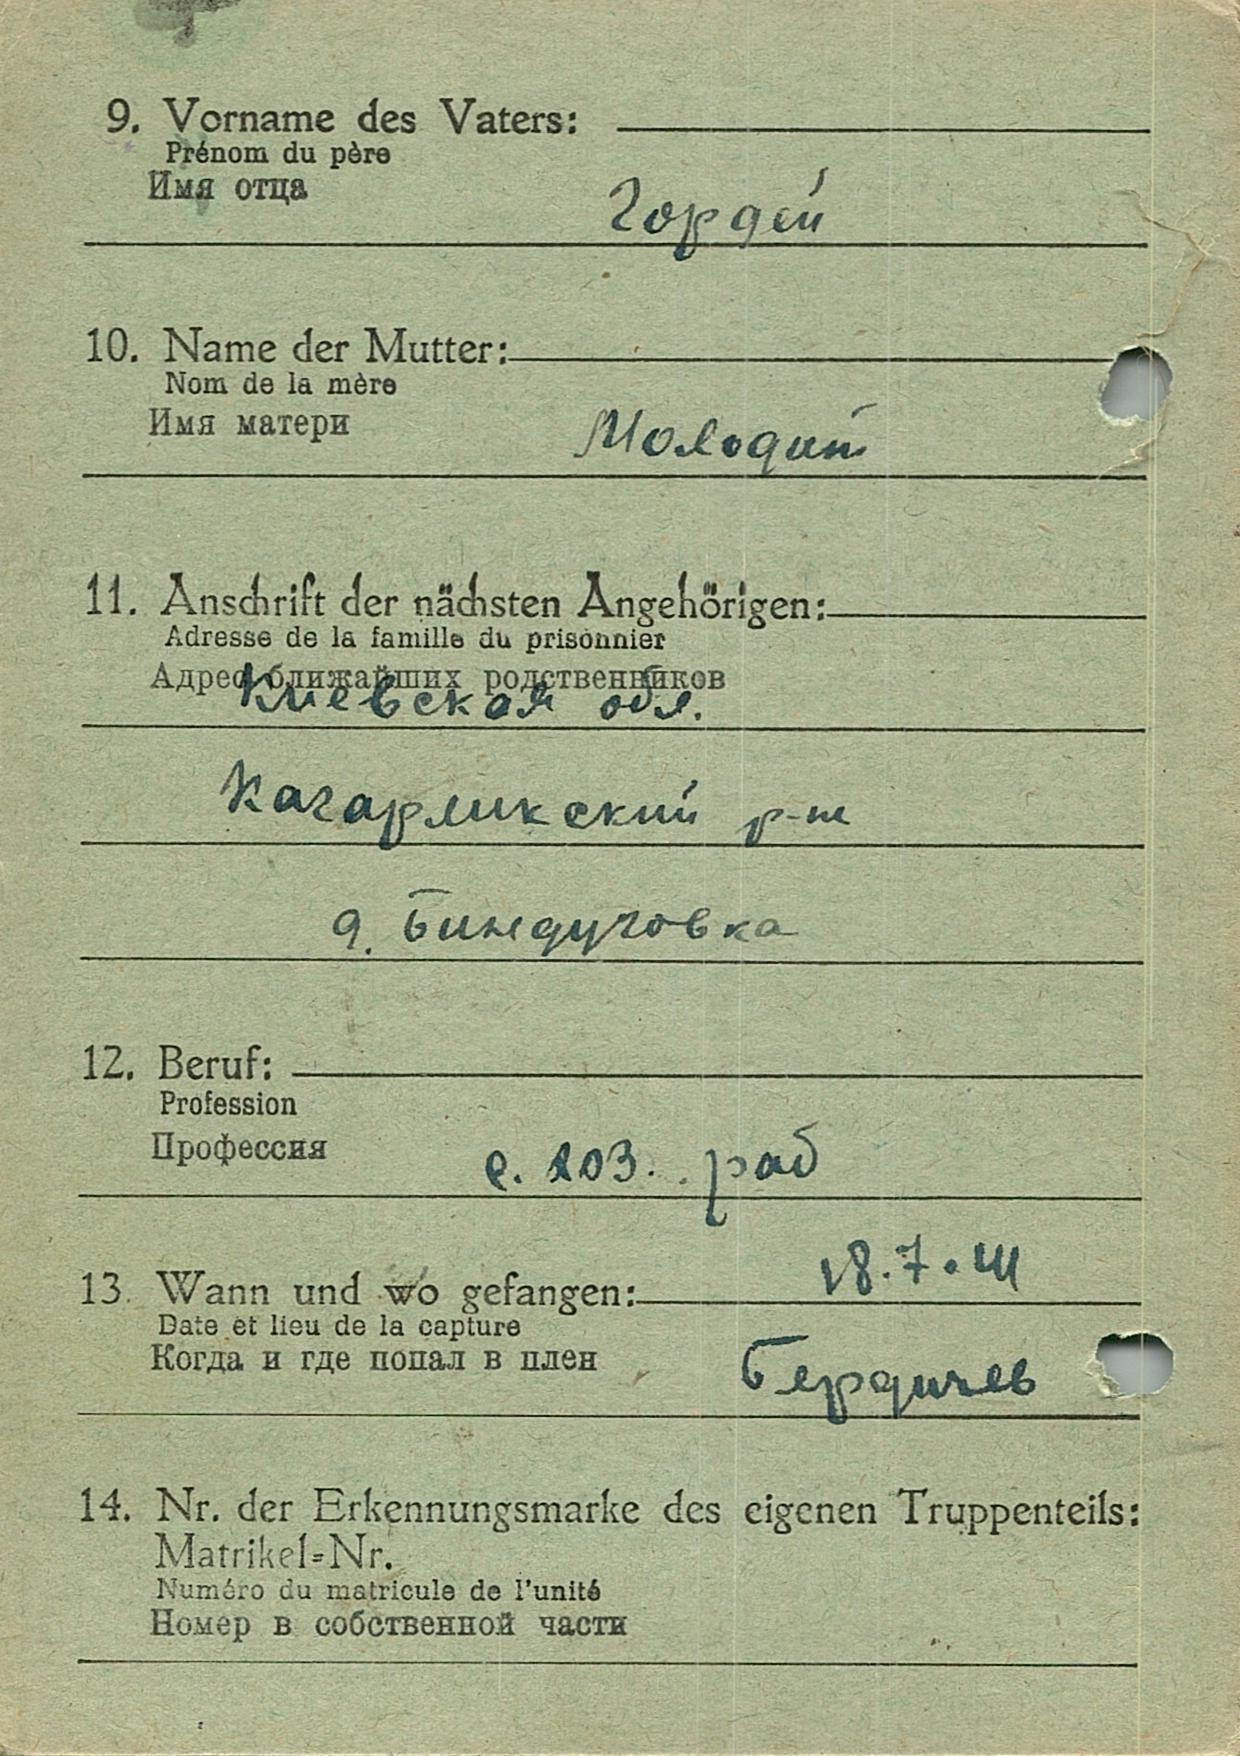 9. Vorname des Vaters:
Prénom du père
Имя отца
Гордей
10. Name der Mutter:
Nom de la mère
Имя матери
Молодит
11. Anschrift der nächsten Angehörigen:
Adresse de la famille du prisonnier
Адрес ближайших родственников
Киевская обл.
Кагарликский р-н
д. Биндуговка
12. Beruf:
Profession
Профессия
с. хоз. раб
18.7.41
13. Wann und wo gefangen:
Date et lieu de la capture
Когда и где попал в плен
Бердичев
14. Nr. der Erkennungsmarke des eigenen Truppenteils:
Matrikel-Nr.
Numéro du matricule de l'unité
Номер в собственной части